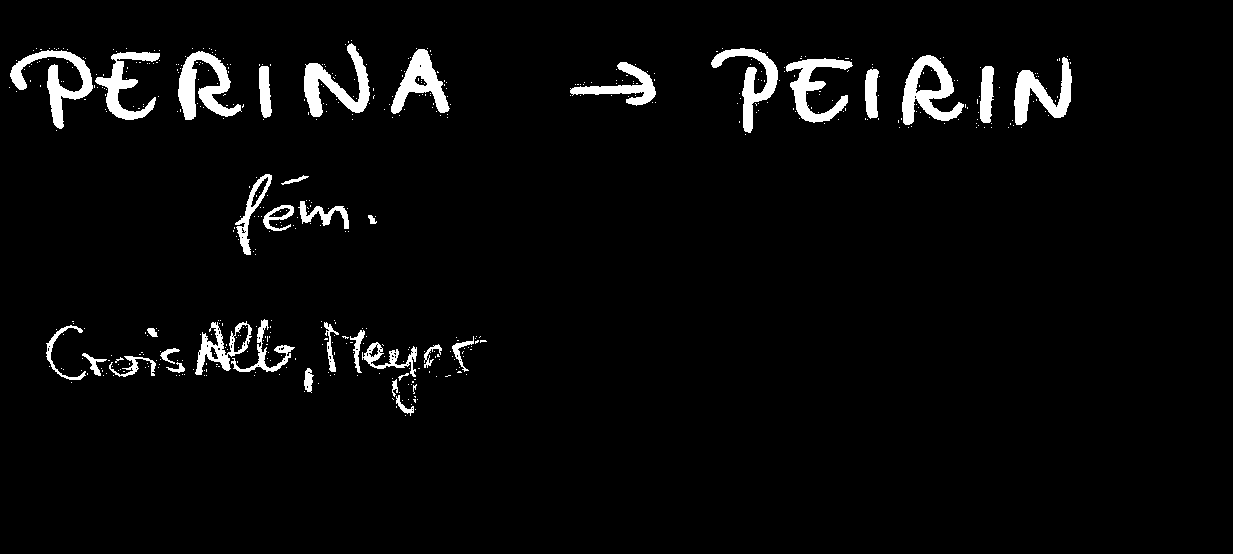 PERINA → PEIRIN
fém.
CroisAlb, Meyer